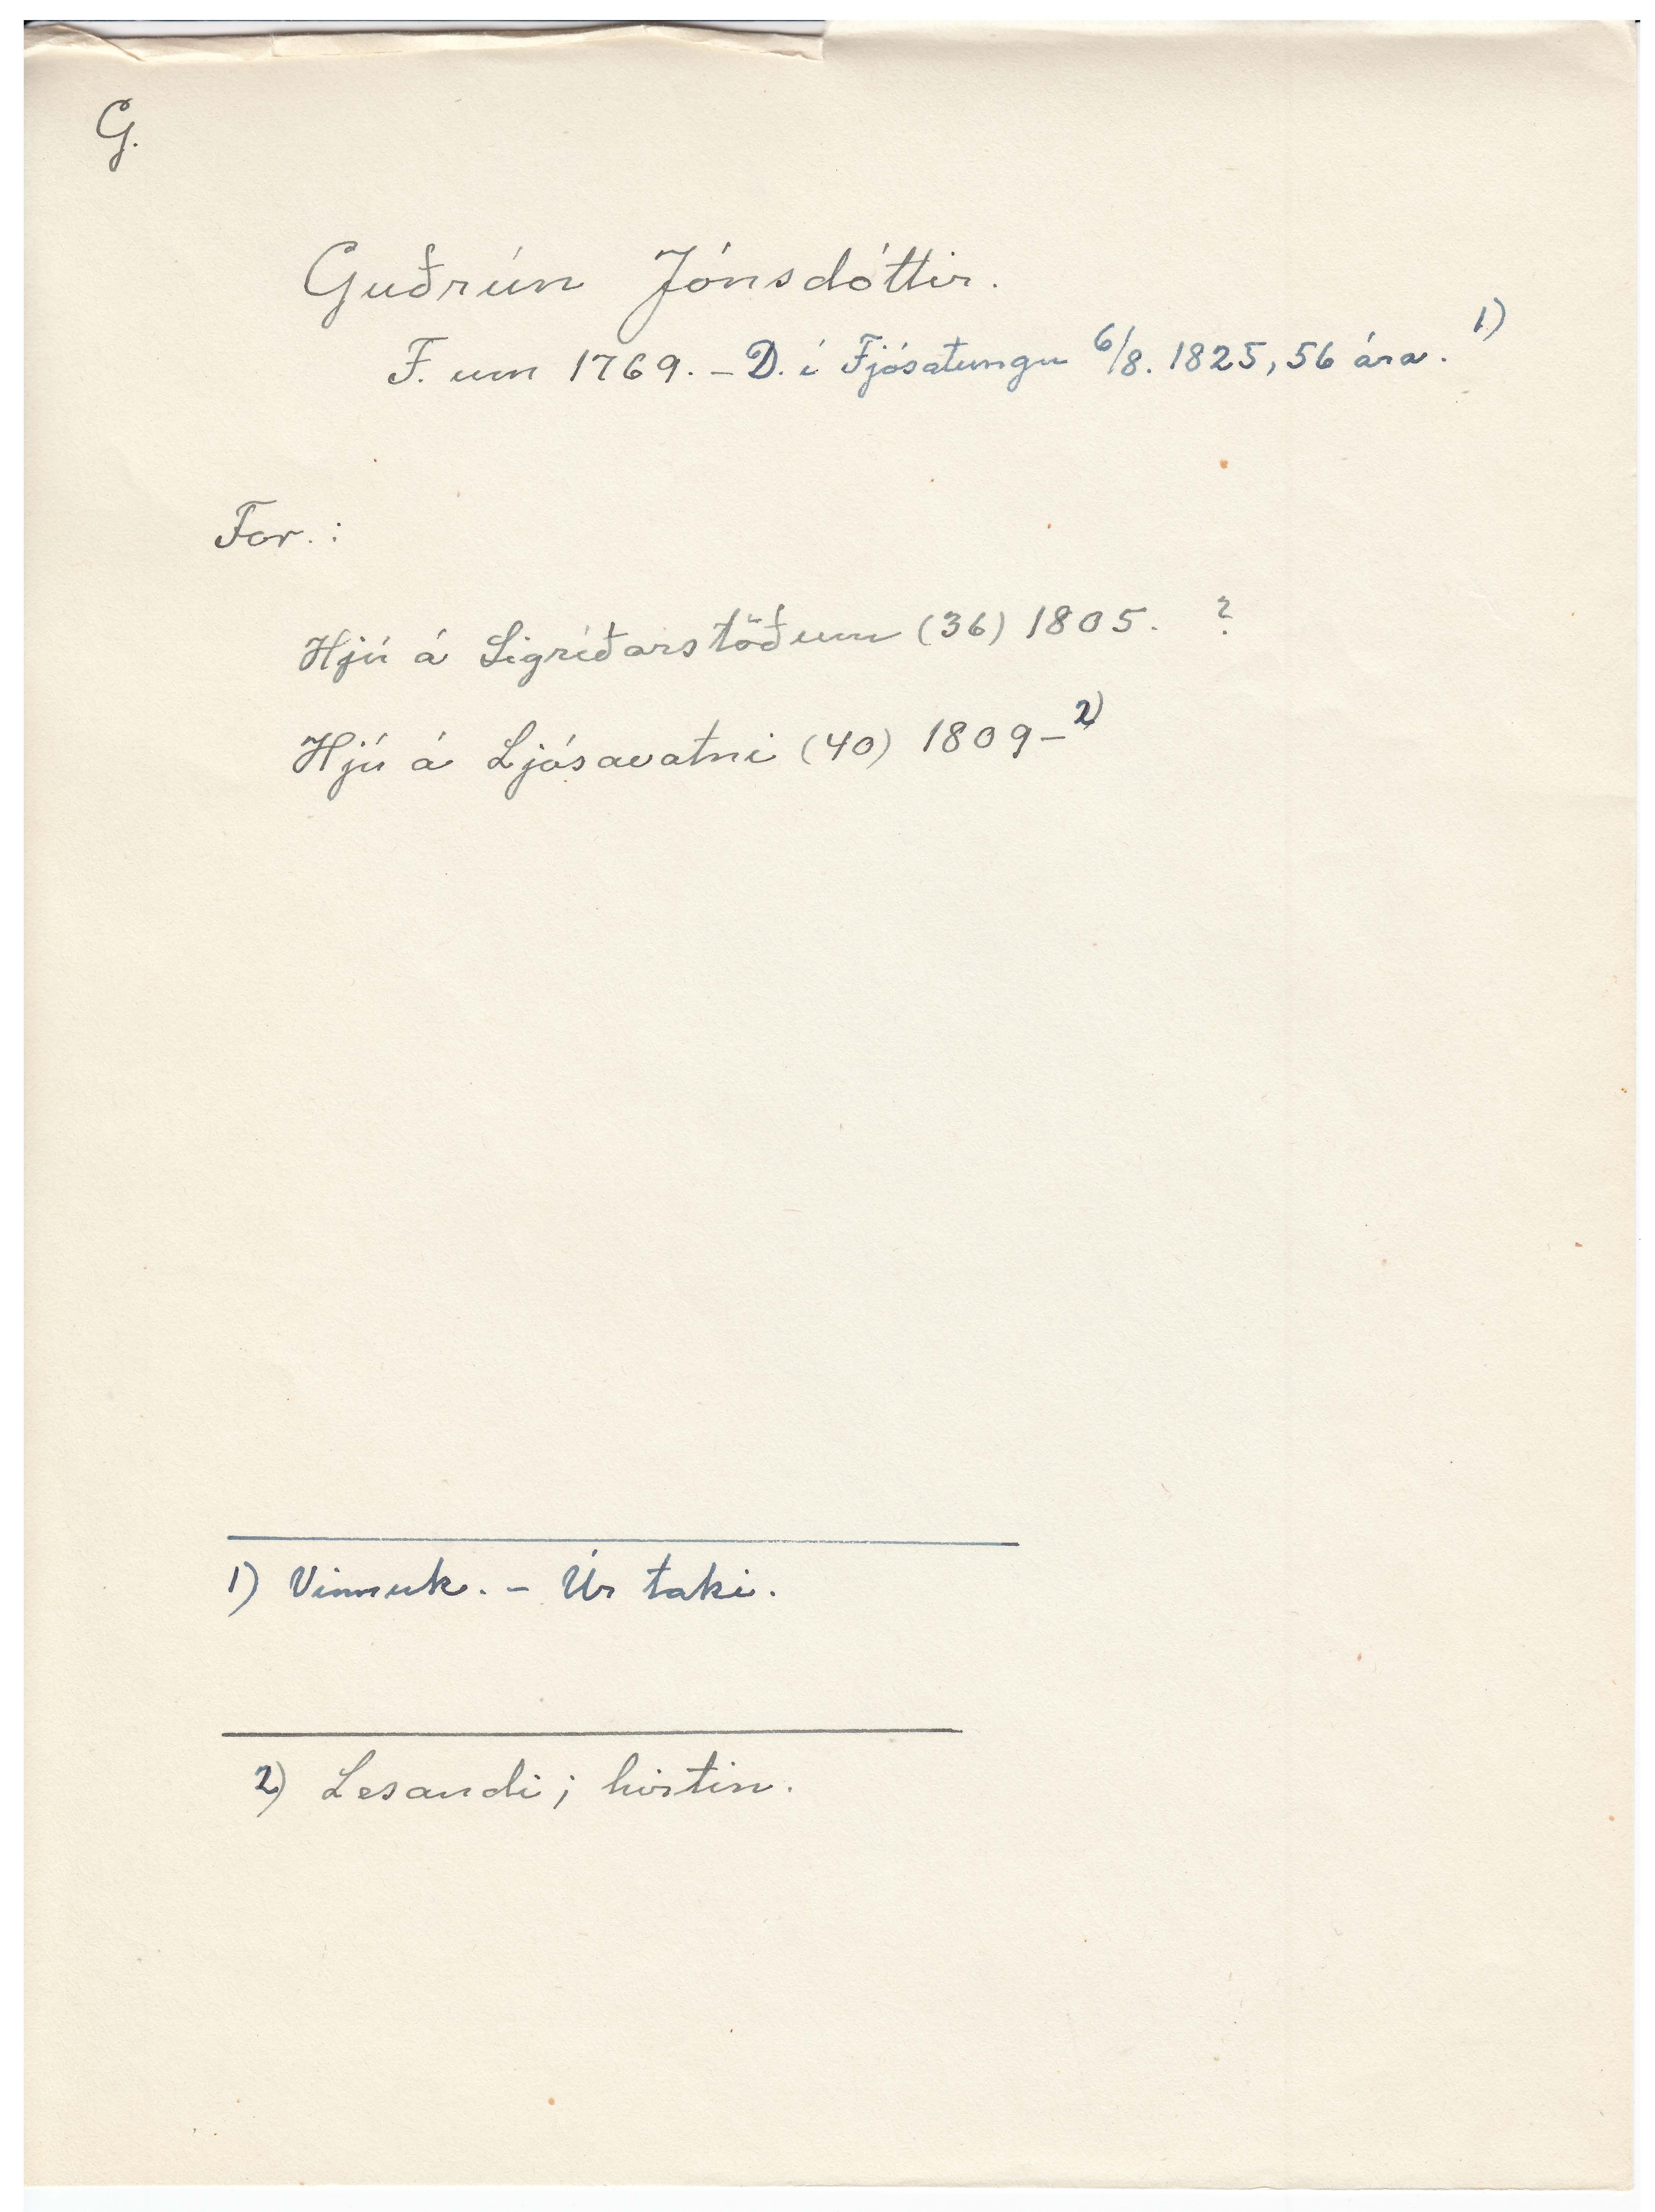 G.
Guðrún Jónsdóttir.
F. um 1769. – D. í Fjósatungu 6/8. 1825, 56 ára. 1)
For. :
Hjú á Sigríðarstöðum (36) 1805. ?
Hjú á Ljósavatni (40) 1809 – 2)
1) Vinnuk. – Úr taki.
2) Lesandi; hirtin.